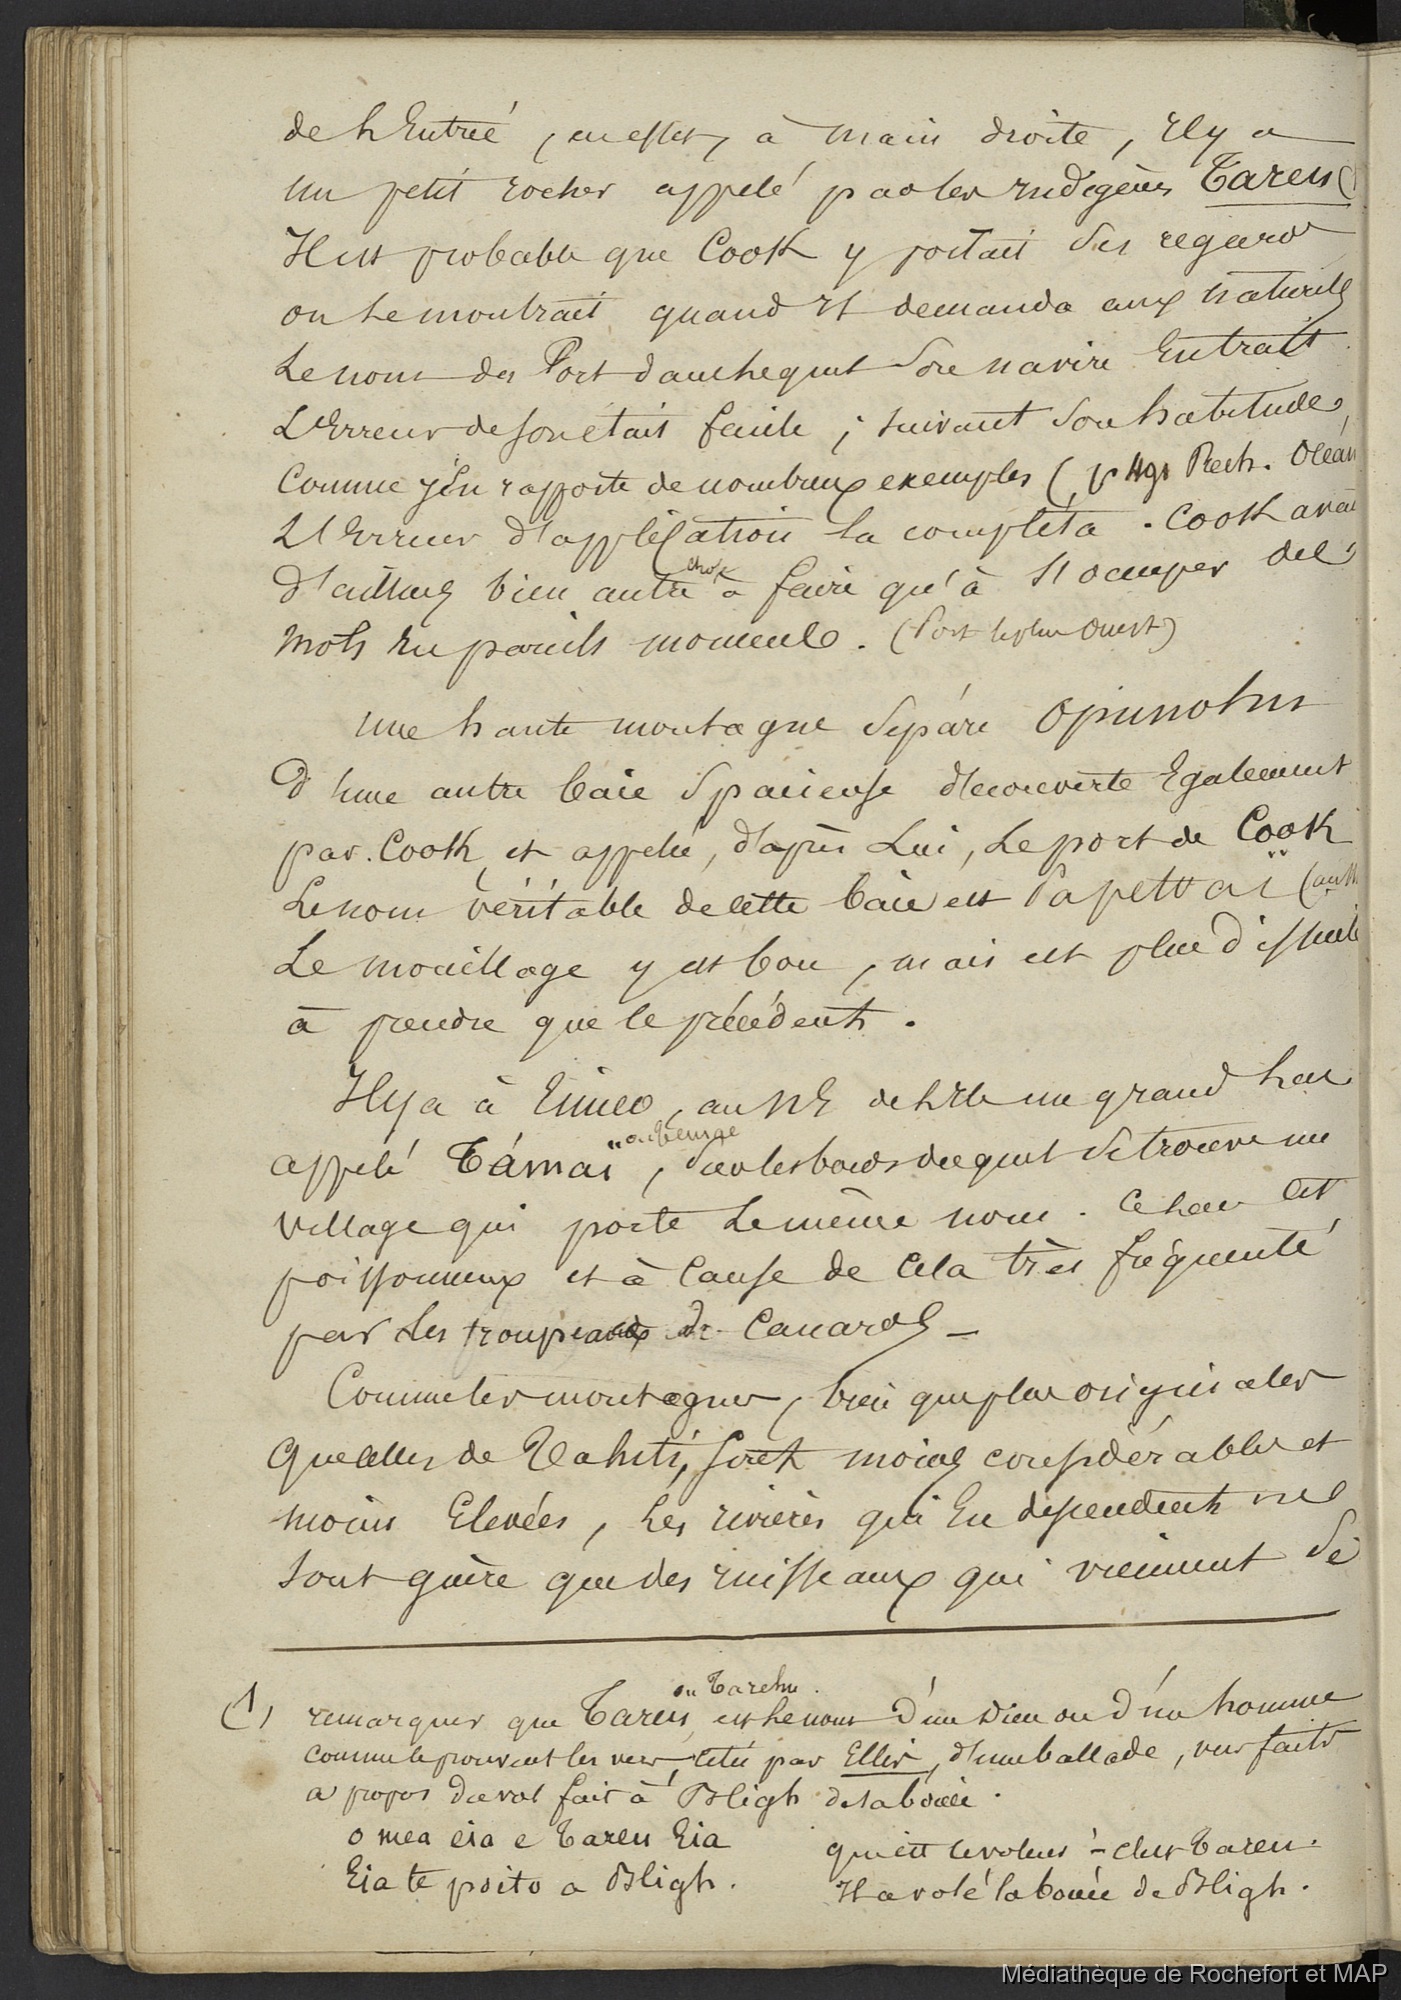 de l'Entrée, en effet, à main droite, il y a
un petit rocher appelé par les indigènes Tareu (1
Il est probable que Cook y portait ses regards
on le montrait quand il demanda aux naturels
le nom du Port dans lequel son navire Entrait
L'Erreur de son était facile ; suivant son habitude,
comme j'en rapporte de nombreux exemples ( Rech. Océan
L'Erreur d'application la compléta . Cook avait
d'ailleurs bien autre chose à faire qu'à s'occuper des
mots en pareils moments . (Port le plus Ouest)
une haute montagne sépare Opunohu
d'une autre baie spacieuse découverte Egalement
par Cook, et appelée, d'après Lui, Le port de Cook
Le nom véritable de cette baie est Papetoaï
Le mouillage y est bon, mais est plus difficile
à prendre que le précédent .
Il y a à Eimeo, au NE de l'Ile un grand lac
appelé Támaï, sur les bords duquel se trouve un
village qui porte Le même nom . Ce lac est
poissonneux et à cause de cela très fréquenté
par Les troupeaux de Canards –
Comme les montagnes, bien que plus originales
que celles de Tahiti, sont moins considérables et
moins Elevées, Les rivières qui En dépendent ne
sont guère que des ruisseaux qui viennent se
ou Tarehu .
(1) remarquer que Tareu est le nom d'un Dieu ou d'un homme
comme le prouvent les vers, cités par Ellis, d'une ballade, vers faits
a propos du vol fait à Bligh de sa bouée .
o mea eia e Tareu Eia qui est le voleur – c'est Tareu .
Eia te poito a Bligh . Il a volé la bouée de Bligh .
Médiathèque de Rochefort et MAP